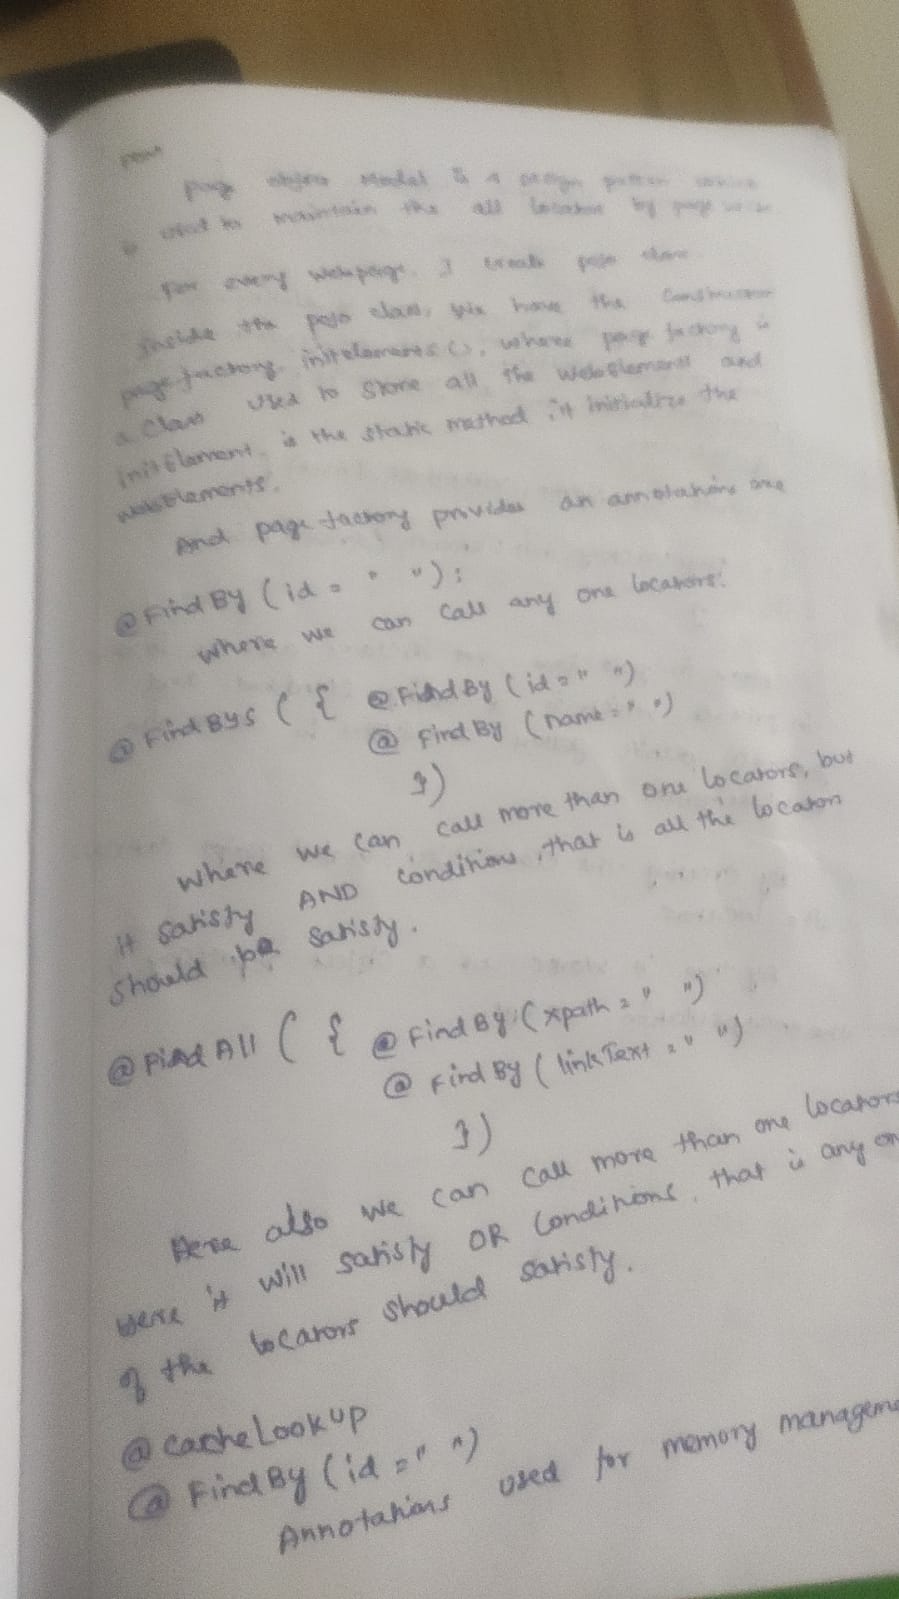 POM
Page object Model is a design pattern which
is used to maintain the all locators by page wise
For every webpage, I create pojo class
Inside the pojo class, we have the Constructor
page factory. initelements (), where page factory is
a class used to store all the WebElements and
initElement is the static method, it initialize the
WebElements.
And page factory provides an annotations are
@ Find By (id = " ");
where we can call any one locators.
@ Find Bys ( { @ Find By (id = " ")
@ Find By (name = " ")
})
where we can call more than one locators, but
it satisfy AND conditions, that is all the locators
should be satisfy.
@ Find All ( { @ Find By (xpath = " ")
@ Find By ( linkText = " ")
})
Here also we can call more than one locators
Here it will satisfy OR Conditions, that is any on
of the locators should satisfy.
@ cacheLookup
@ Find By (id = " ")
Annotations used for memory manageme